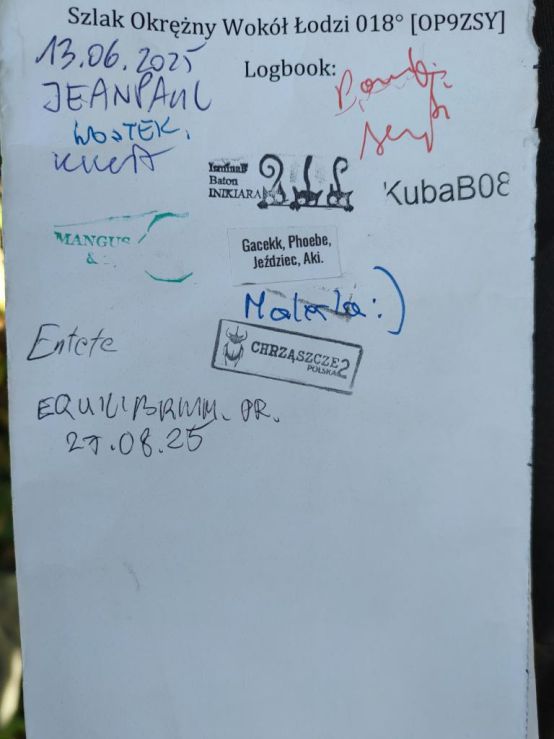 Szlak Okrężny Wokół Łodzi 018° [OP9ZSY]
Logbook:
13.06.2025
JEANPAUL
WOJTEK,
Baton
INIKIARA
KubaB08
MANGUS
&
Gacekk, Phoebe,
Jeździec, Aki.
Malala:)
Entete
CHRZĄSZCZE2
POLSKA
EQUILIBRIUM.PR.
27.08.25